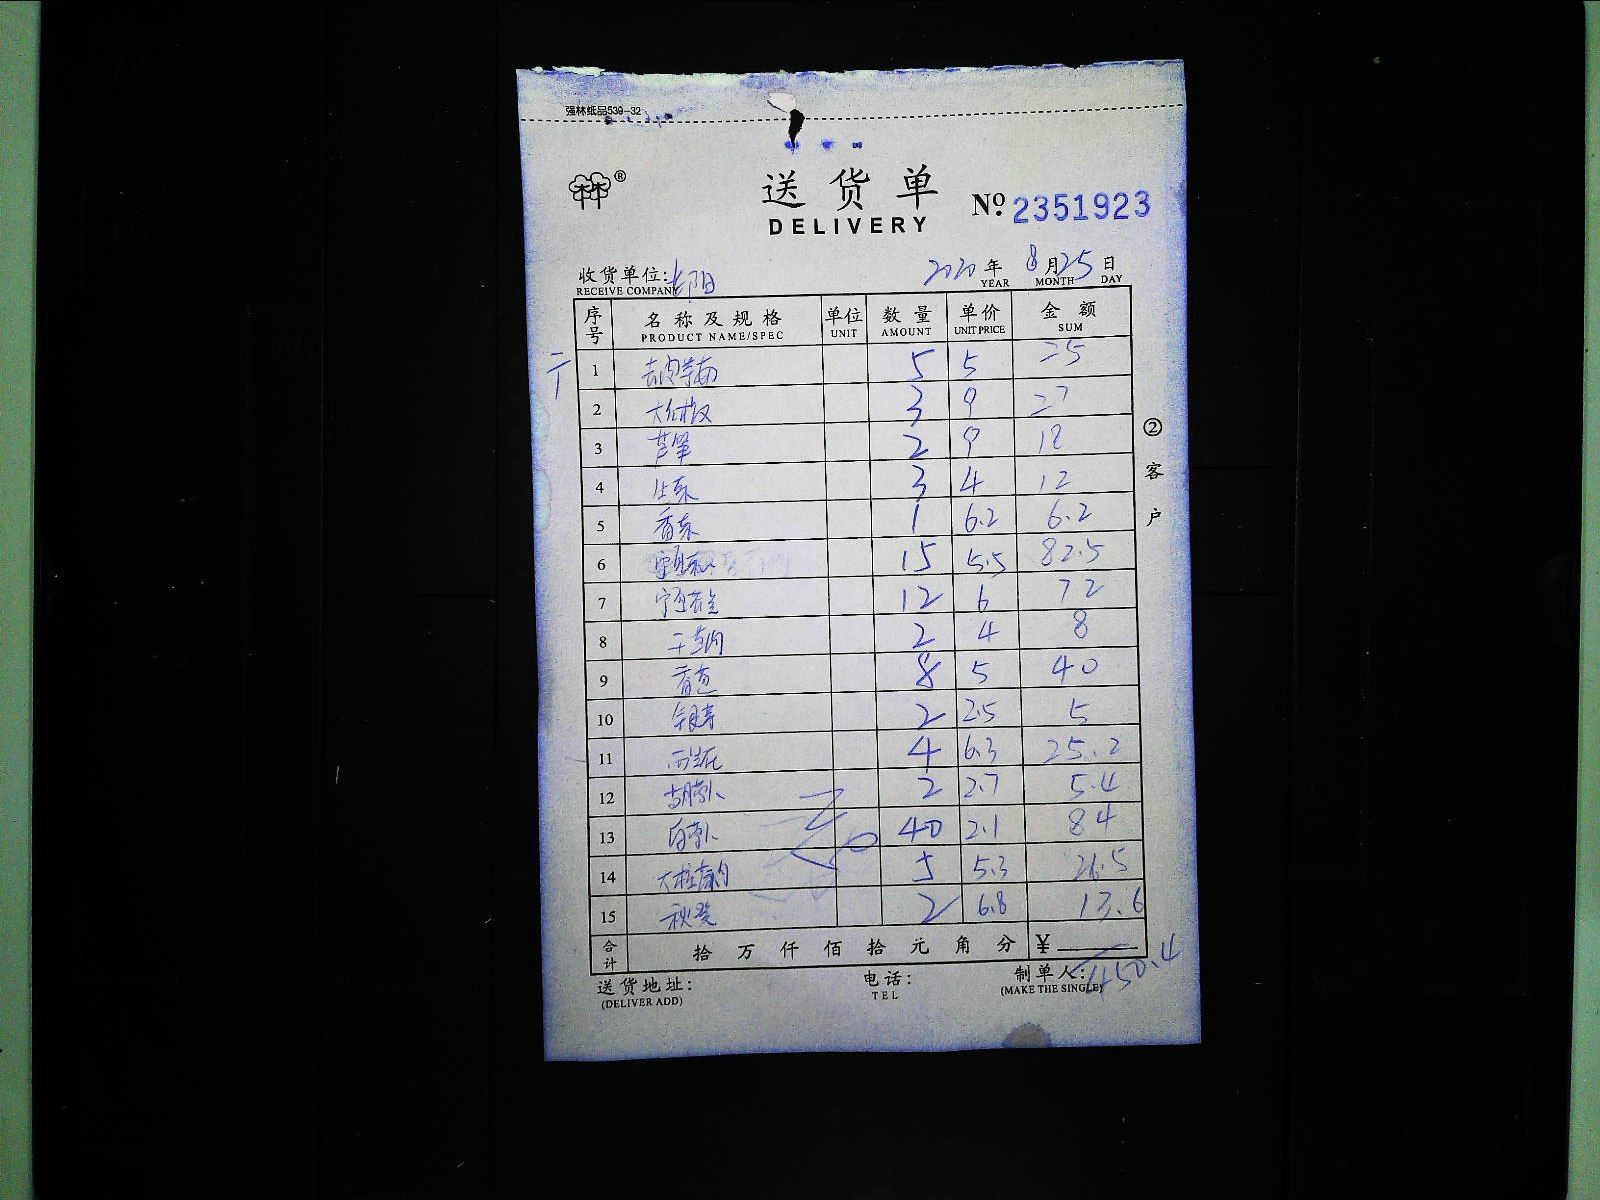 强林纸品539-32
林林®
送货单 Nº 2351923
DELIVERY
收货单位: 2020年8月25日
RECEIVE COMPANY YEAR MONTH DAY
序号 名称及规格 单位 数量 单价 金额
PRODUCT NAME/SPEC UNIT AMOUNT UNIT PRICE SUM
1 5 5 25
2 3 9 27
3 芦笋 2 9 18
4 3 4 12
5 香菜 1 6.2 6.2
6 15 5.5 82.5
7 12 6 72
8 2 4 8
9 8 5 40
10 银芽 2 2.5 5
11 西兰花 4 6.3 25.2
12 胡萝卜 2 2.7 5.4
13 白萝卜 40 2.1 84
14 5 5.3 26.5
15 秋葵 2 6.8 13.6
合计 拾万仟佰拾元角分 ¥
450.4
送货地址: 电话: 制单人:
(DELIVER ADD) TEL (MAKE THE SINGLE)
②客户